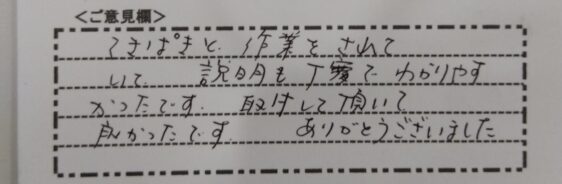 <ご意見欄>
てきぱきと、作業をされて
いて、説明も丁寧で わかりやす
かったです。取付して頂いて
良かったです。ありがとうございました